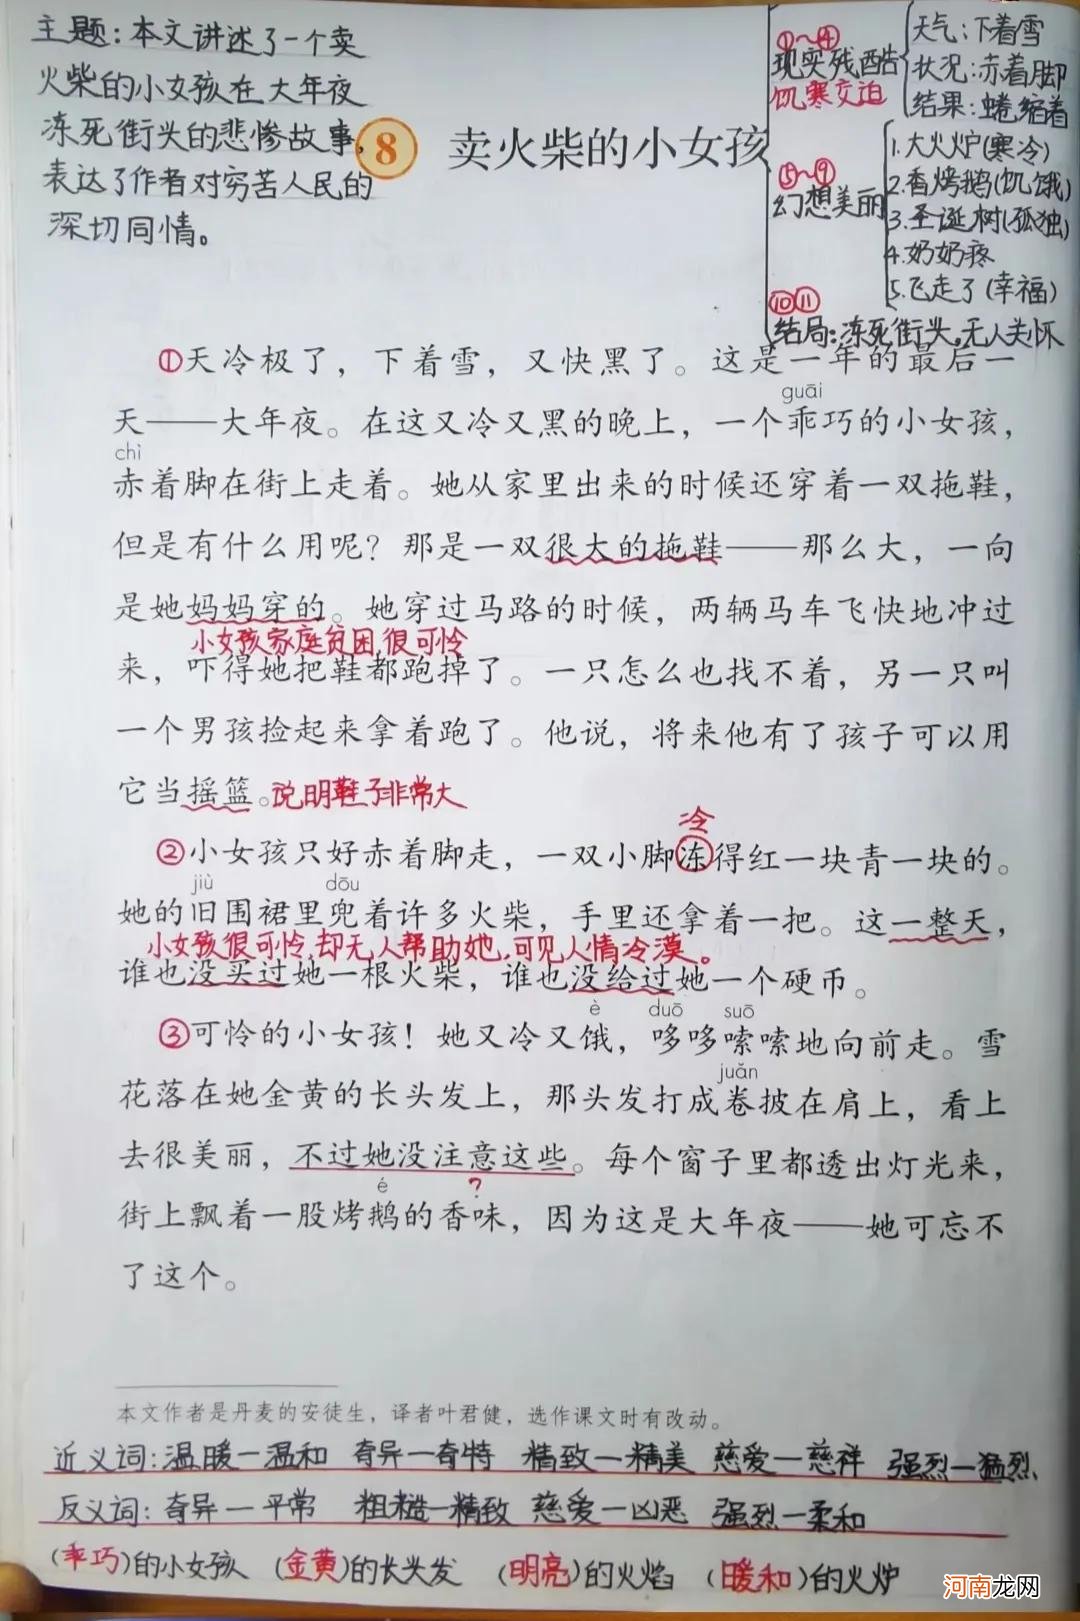 主题:本文讲述了一个卖
火柴的小女孩在大年夜
冻死街头的悲惨故事,
表达了作者对穷苦人民的
深切同情。
8 卖火柴的小女孩
①~④
现实残酷
饥寒交迫
天气:下着雪
状况:赤着脚
结果:蜷缩着
⑤~⑨
幻想美丽
1.大火炉(寒冷)
2.香烤鹅(饥饿)
3.圣诞树(孤独)
4.奶奶疼
5.飞走了(幸福)
⑩⑪
结局:冻死街头,无人关怀
①天冷极了，下着雪，又快黑了。这是一年的最后一
guāi
天——大年夜。在这又冷又黑的晚上，一个乖巧的小女孩，
chì
赤着脚在街上走着。她从家里出来的时候还穿着一双拖鞋，
但是有什么用呢？那是一双很大的拖鞋——那么大，一向
是她妈妈穿的。她穿过马路的时候，两辆马车飞快地冲过
小女孩家庭贫困,很可怜
来，吓得她把鞋都跑掉了。一只怎么也找不着，另一只叫
一个男孩捡起来拿着跑了。他说，将来他有了孩子可以用
它当摇篮。说明鞋子非常大
冷
②小女孩只好赤着脚走，一双小脚冻得红一块青一块的。
jiù dōu
她的旧围裙里兜着许多火柴，手里还拿着一把。这一整天，
小女孩很可怜,却无人帮助她,可见人情冷漠。
谁也没买过她一根火柴，谁也没给过她一个硬币。
è duō suō
③可怜的小女孩！她又冷又饿，哆哆嗦嗦地向前走。雪
juǎn
花落在她金黄的长头发上，那头发打成卷披在肩上，看上
去很美丽，不过她没注意这些。每个窗子里都透出灯光来，
é ?
街上飘着一股烤鹅的香味，因为这是大年夜——她可忘不
了这个。
本文作者是丹麦的安徒生，译者叶君健，选作课文时有改动。
近义词:温暖—温和 奇异—奇特 精致—精美 慈爱—慈祥 强烈—猛烈
反义词:奇异—平常 粗糙—精致 慈爱—凶恶 强烈—柔和
(乖巧)的小女孩 (金黄)的长头发 (明亮)的火焰 (暖和)的火炉
河南龙网